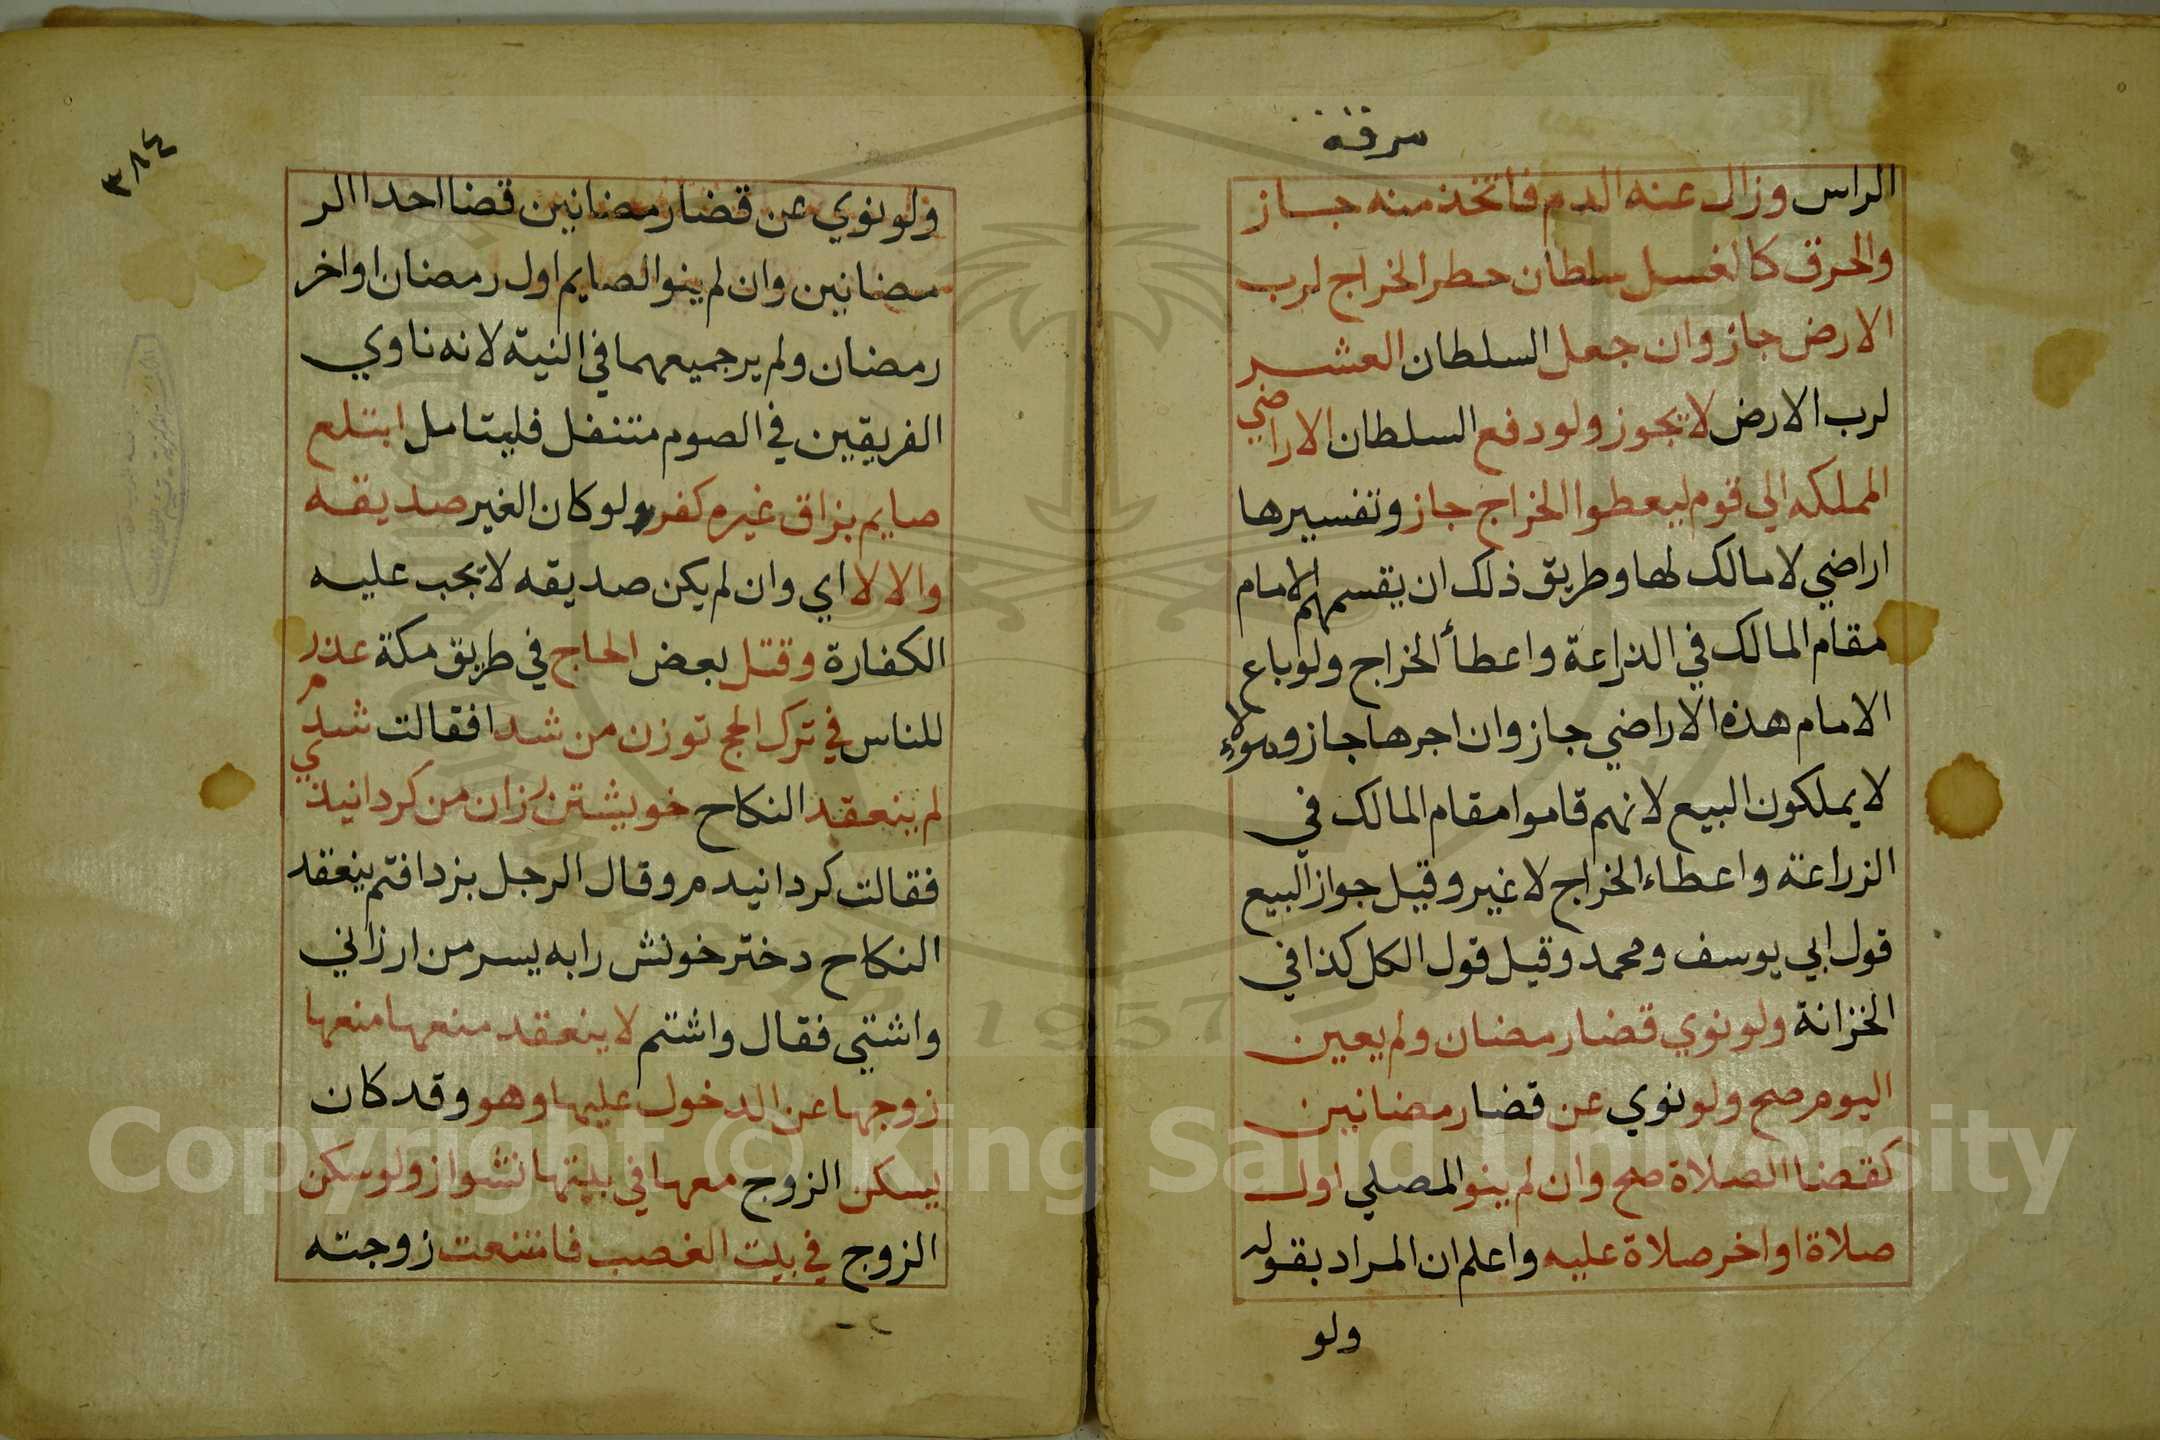 سرقة
الراس وزال عنه الدم فاتخذ منه جاز
والحرق كالغسل سلطان حطر الخراج لرب
الارض جاز وان جعل السلطان العشر
لرب الارض لا تجوز ولو دفع السلطان الاراضي
المملكه الي قوم ليعطوا الخراج جاز وتفسيرها
اراضي لا مالك لها وطريق ذلك ان يقسمهم الامام
مقام المالك في الذراعة واعطأ الخراج ولو اباع
الامام هذه الاراضي جاز وان اجرها جاز وهولاء
لا يملكون البيع لانهم قاموا مقام المالك في
الزراعة واعطاء الخراج لا غير وقيل جواز البيع
قول ابي يوسف ومحمد وقيل قول الكل كذا في
الخزانة ولو نوي قضا رمضان ولم يعين
اليوم صح ولو نوي عن قضا رمضانين
كقضا الصلاة صح وان لم ينو المصلي اول
صلاة او اخر صلاة عليه واعلم ان المراد بقوله
ولو
٣٨٤
ولو نوي عن قضا رمضانين قضا احدا الر
مضانين وان لم ينو الصايم اول رمضان او اخر
رمضان ولم ير جميعهما في النية لانه ناوي
الفريقين في الصوم متنفل فليتامل ابتلع
صايم بزاق غيره كفر ولو كان الغير صديقه
والا لا اي وان لم يكن صديقه لا تجب عليه
الكفارة وقتل بعض الحاج في طريق مكة عذر
للناس في ترك الحج توزن من شدا فقالت شدم
لم ينعقد النكاح خويشتن زان من كردانيذي
فقالت كردانيدم وقال الرجل بزدافتم ينعقد
النكاح دختر خونش رابه يسر من ارزاني
واشتي فقال واشتم لا ينعقد منعها منعها
زوجها عن الدخول عليها وهو وقد كان
يسكن الزوج معها في بيتها نشواز ولو سكن
الزوج في بيت الغصب فامتنعت زوجته
Copyright © King Saud University
1957